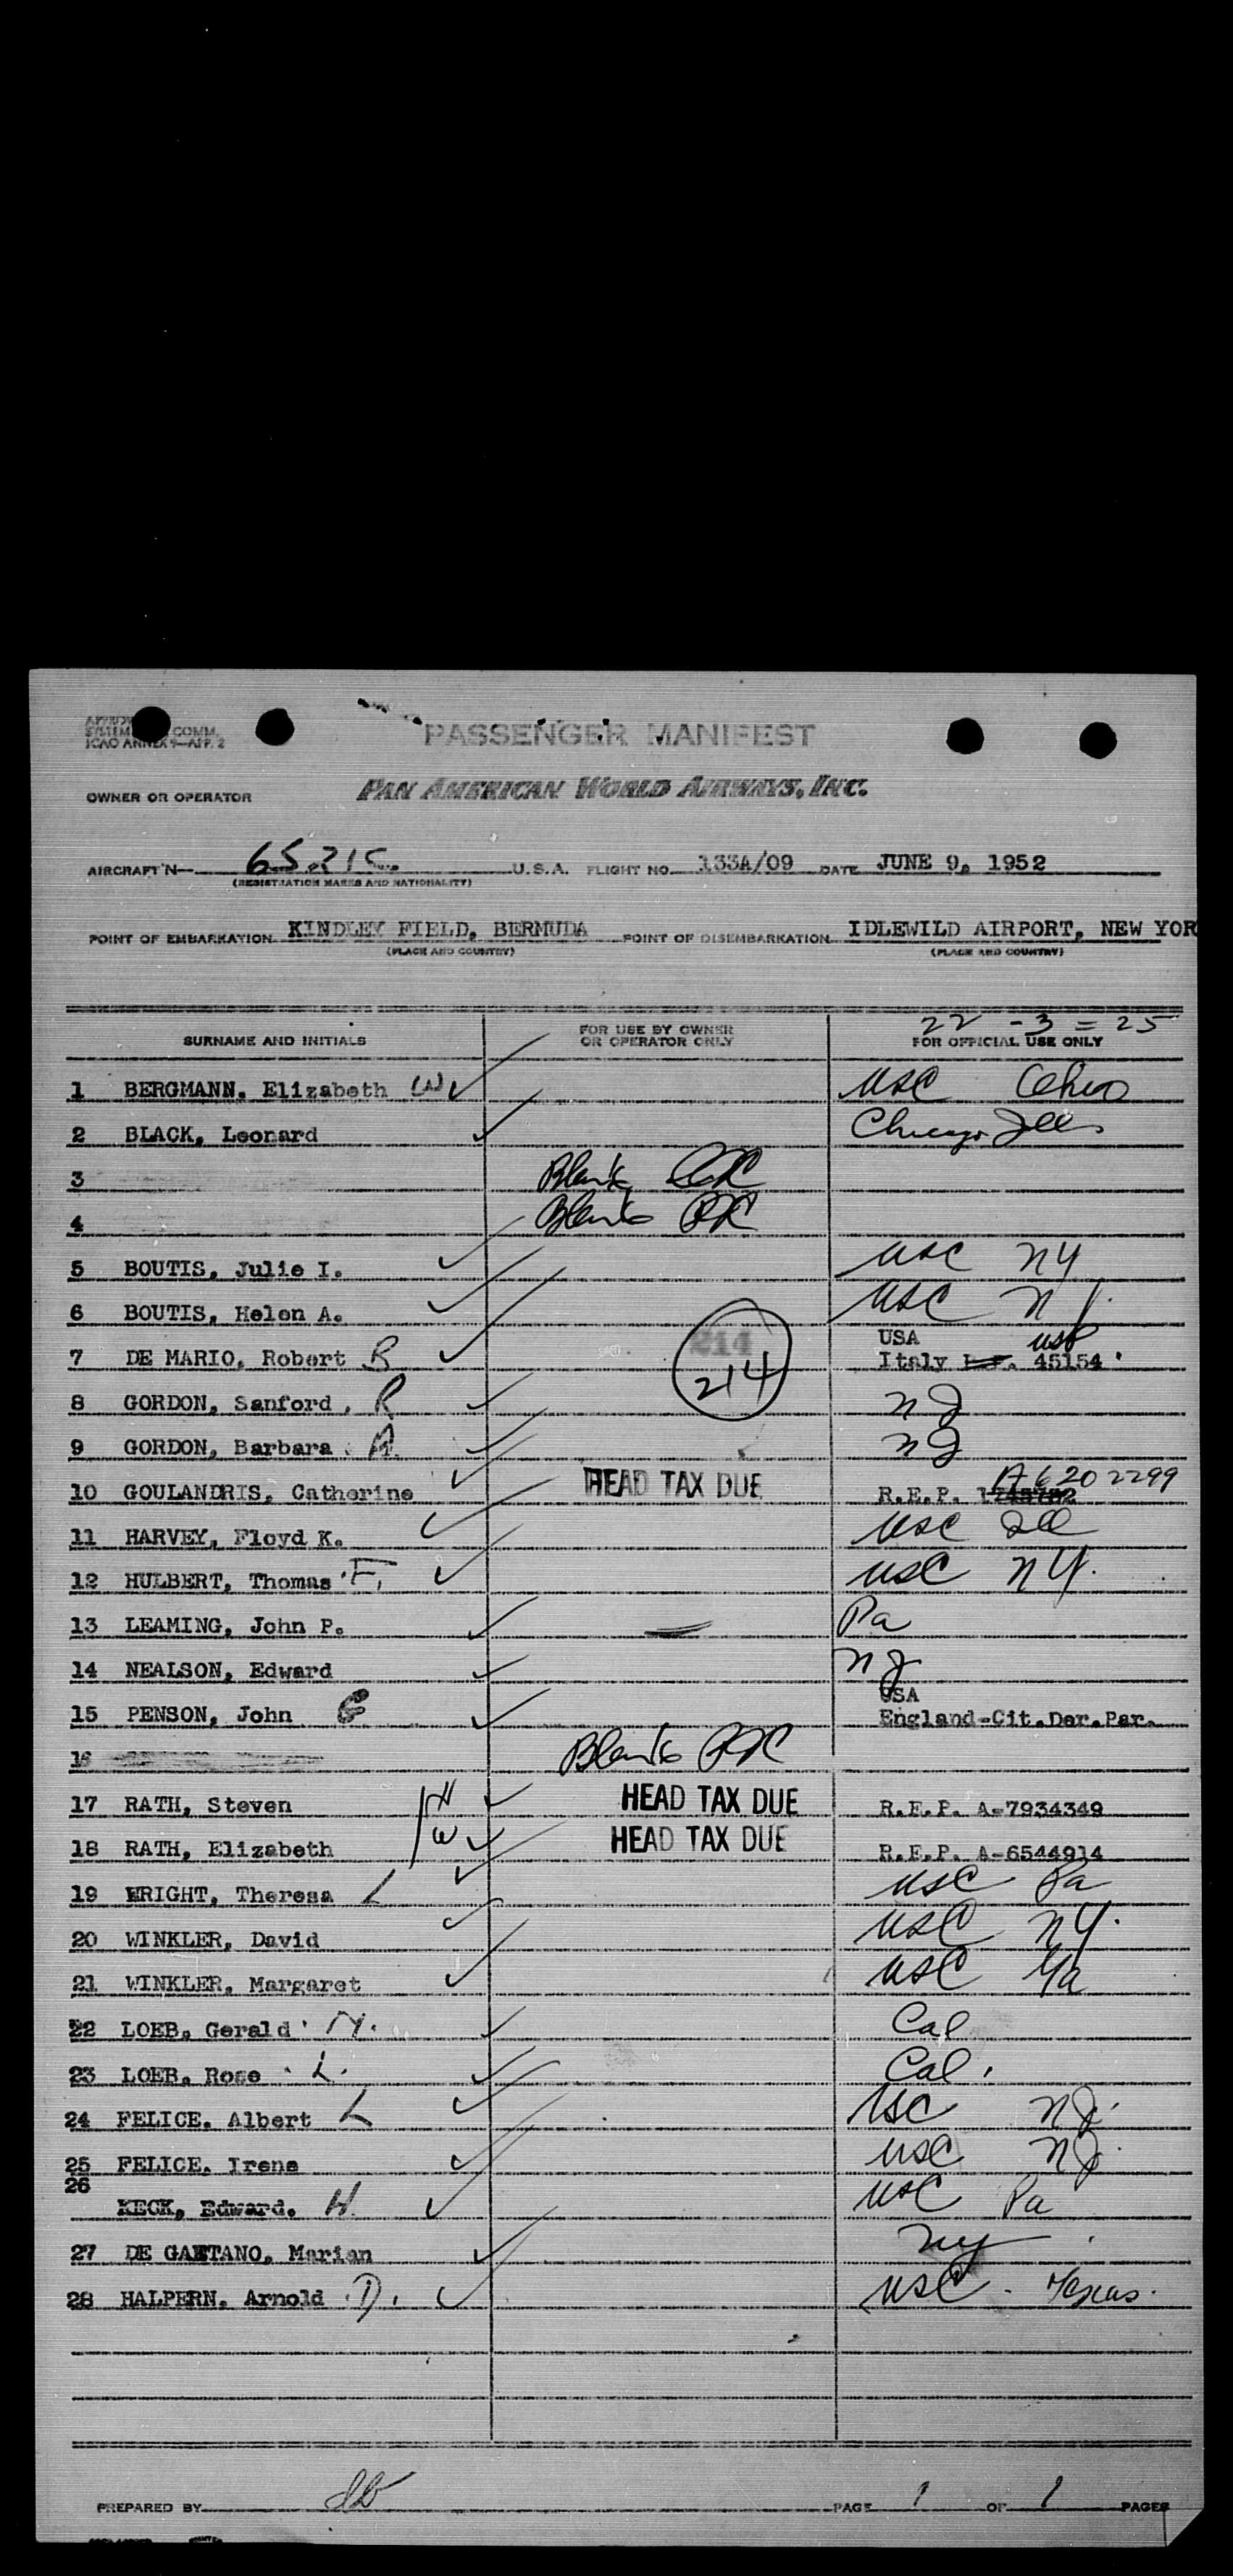 PASSENGER MANIFEST
COMM.
ICAO ANNEX 9—APP. 2
OWNER OR OPERATOR PAN AMERICAN WORLD AIRWAYS, INC.
AIRCRAFT N— U.S.A. FLIGHT NO. 133A/09 DATE JUNE 9, 1952
(REGISTRATION MARKS AND NATIONALITY)
POINT OF EMBARKATION KINDLEY FIELD, BERMUDA POINT OF DISEMBARKATION IDLEWILD AIRPORT, NEW YOR
(PLACE AND COUNTRY) (PLACE AND COUNTRY)
22 - 3 = 25
SURNAME AND INITIALS FOR USE BY OWNER OR OPERATOR ONLY FOR OFFICIAL USE ONLY
1 BERGMANN. Elizabeth W USC Ohio
2 BLACK, Leonard Chicago Ill.
3 Blank
4 Blank
5 BOUTIS, Julie I. USC NY
6 BOUTIS, Helen A. USC N
USA
7 DE MARIO, Robert R 214 214 Italy 45154
8 GORDON, Sanford, R NJ
9 GORDON, Barbara A. NJ
10 GOULANDRIS, Catherine HEAD TAX DUE R.E.P. A6202299
11 HARVEY, Floyd K. USC Ill
12 HULBERT, Thomas F. USC NY.
13 LEAMING, John P. Pa
14 NEALSON, Edward NJ
USA
15 PENSON, John England-Cit.Der.Par.
16 Blank
17 RATH, Steven H HEAD TAX DUE R.E.P. A-7934349
18 RATH, Elizabeth W HEAD TAX DUE R.E.P. A-6544914
19 WRIGHT, Theresa L USC Pa
20 WINKLER, David USC NY.
21 WINKLER, Margaret USC
22 LOEB, Gerald M. Cal
23 LOEB, Rose L. Cal.
24 FELICE. Albert L USC NJ.
25 FELICE. Irene USC NJ.
26
KECK, Edward. H. USC Pa
27 DE GAETANO, Marian NY
28 HALPERN. Arnold D. USC - Texas.
PREPARED BY PAGE 1 OF 1 PAGES